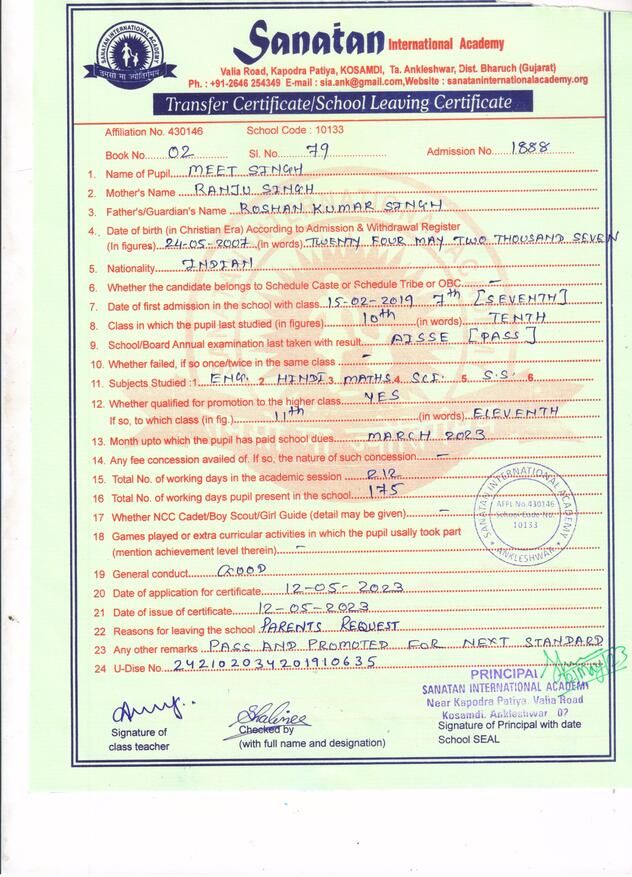 SANATAN INTERNATIONAL ACADEMY
तमसो मा ज्योतिर्गमय
Sanatan International Academy
Valia Road, Kapodra Patiya, KOSAMDI, Ta. Ankleshwar, Dist. Bharuch (Gujarat)
Ph. : +91-2646 254349 E-mail : sia.ank@gmail.com,Website : sanataninternationalacademy.org
Transfer Certificate/School Leaving Certificate
Affiliation No. 430146 School Code : 10133
Book No. 02 Sl. No. 79 Admission No. 1888
1. Name of Pupil MEET SINGH
2. Mother's Name RANJU SINGH
3. Father's/Guardian's Name ROSHAN KUMAR SINGH
4. Date of birth (in Christian Era) According to Admission & Withdrawal Register
(In figures) 24-05-2007 (in words) TWENTY FOUR MAY TWO THOUSAND SEVEN
5. Nationality INDIAN
6. Whether the candidate belongs to Schedule Caste or Schedule Tribe or OBC. —
7. Date of first admission in the school with class 15-02-2019 7th [SEVENTH]
8. Class in which the pupil last studied (in figures) 10th (in words) TENTH
9. School/Board Annual examination last taken with result AISSE [PASS]
10. Whether failed, if so once/twice in the same class -
11. Subjects Studied :1. ENG. 2. HINDI 3. MATHS 4. SCI. 5. S.S. 6.
12. Whether qualified for promotion to the higher class YES
If so, to which class (in fig.) 11th (in words) ELEVENTH
13. Month upto which the pupil has paid school dues MARCH 2023
14. Any fee concession availed of. If so, the nature of such concession —
15. Total No. of working days in the academic session 212
16 Total No. of working days pupil present in the school 175
17 Whether NCC Cadet/Boy Scout/Girl Guide (detail may be given) —
18 Games played or extra curricular activities in which the pupil usally took part
(mention achievement level therein) -
SANATAN INTERNATIONAL ACADEMY
AFFL No.430146
School Code No.
10133
* ANKLESHWAR *
19 General conduct GOOD
20 Date of application for certificate 12-05-2023
21 Date of issue of certificate 12-05-2023
22 Reasons for leaving the school PARENTS REQUEST
23 Any other remarks PASS AND PROMOTED FOR NEXT STANDARD
24 U-Dise No. 242102034201910635
PRINCIPAL
SANATAN INTERNATIONAL ACADEMY
Near Kapodra Patiya, Valia Road
Kosamdi, Ankleshwar 02
Shalinee
Signature of
class teacher
Checked by
(with full name and designation)
Signature of Principal with date
School SEAL